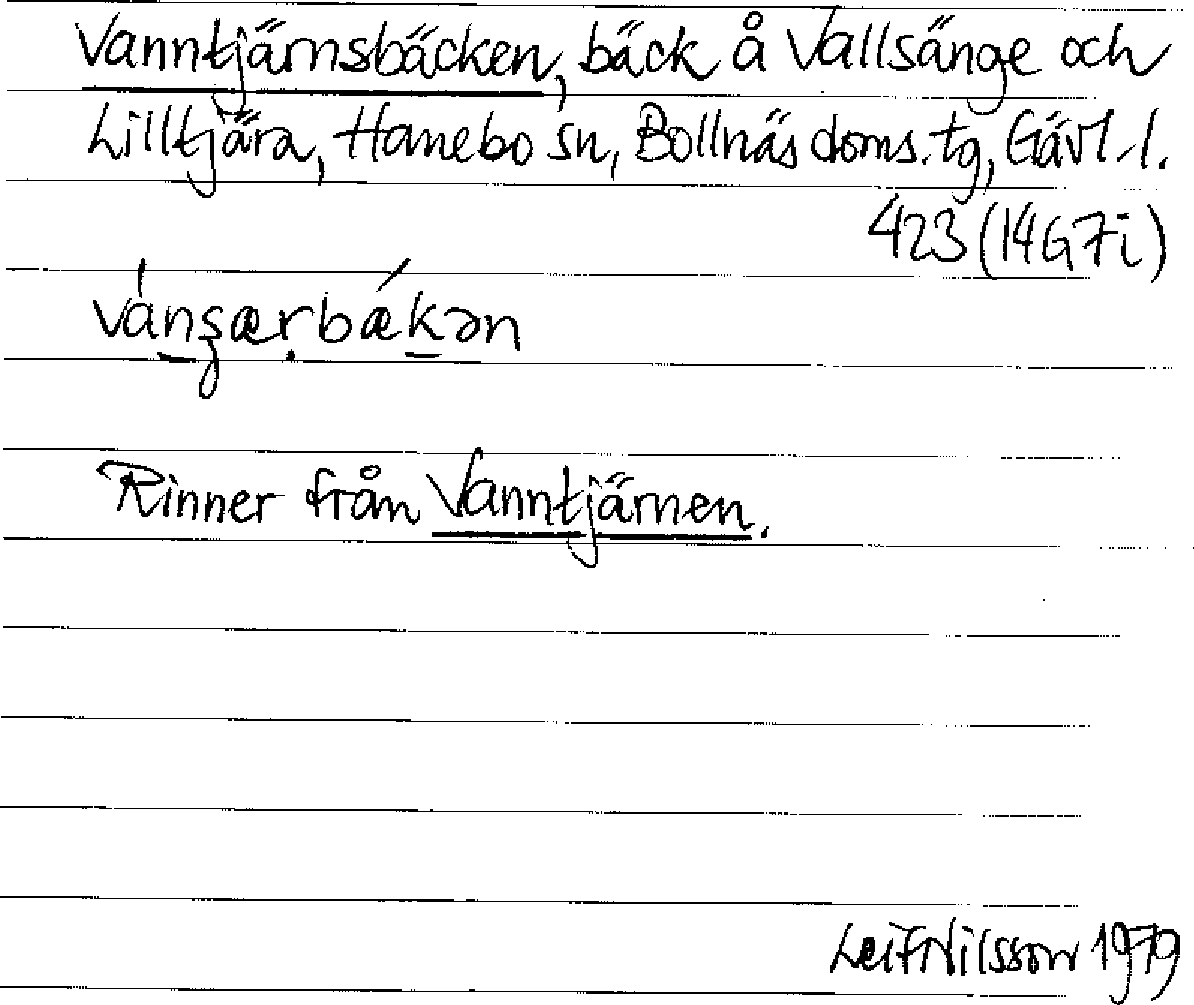 Vanntjärnsbäcken, bäck å Vallsänge och
Lilltjära, Hanebo sn, Bollnäs doms. tg, Gävl. l.
423 (14G7i)
vánʒærbǽkən
Rinner från Vanntjärnen.
Leif Nilsson 1979